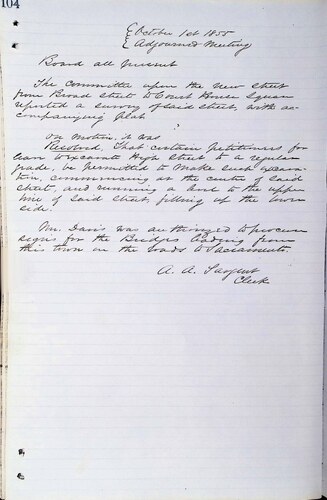 104
October 1st 1855
Adjourned Meeting
Board all present
The committee upon the new street
from Broad street to Court House Square
reported a survey of said street, with ac-
companying plat
On motion, it was
Resolved, That certain petitioners for
leave to excavate High street to a regular
grade, be permitted to make such excava-
tion, commencing at the centre of said
street, and running a level to the upper
line of said street, filling up the lower
side.
Mr. Davis was authorized to procure
signs for the Bridges leading from
this town on the roads to Sacramento.
A. A. Sargent
Clerk